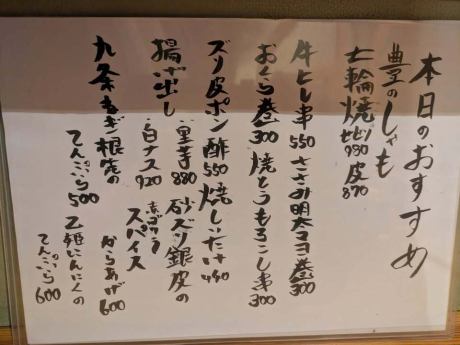 本日のおすすめ
豊のしゃも
七輪焼 セセリ 980 皮 870
牛ヒレ串 550 ささみ明太マヨ巻 300
おくら巻 300 焼とうもろこし串 300
ズリ皮ポン酢 550 焼しいたけ 440
揚げ出し 里芋 880 白ナス 920
砂ズリ銀皮のスパイス からあげ 600
九条ねぎ根の てんぷら 500
乙姫にんにくの てんぷら 600